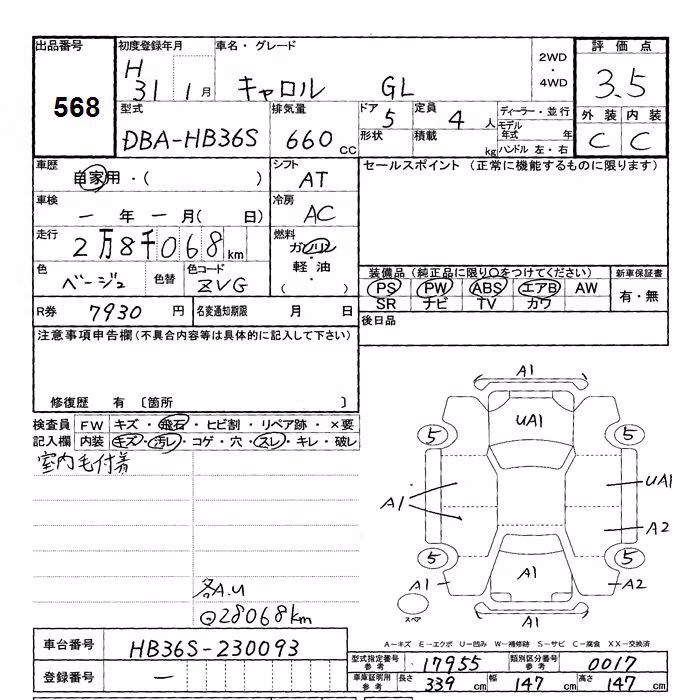 出品番号
568
初度登録年月
H 31 1月
車名・グレード
キャロル GL
2WD
・
4WD
評価点
3.5
外装 内装
C C
型式
DBA-HB36S
排気量
660 cc
ドア 5
形状
定員 4 人
積載 kg
ディーラー・並行
モデル年式 年
ハンドル 左・右
車歴
自家用・( )
シフト
AT
セールスポイント (正常に機能するものに限ります)
車検
ー 年 ー 月( 日)
冷房
AC
走行
2万8千068 km
燃料
ガソリン
・
軽油
( )
色
ベージュ
色替
色コード
ZVG
装備品(純正品に限り○をつけてください)
PS PW ABS エアB AW
SR ナビ TV カワ
新車保証書
有・無
R券 7930 円
名変通知期限 月 日
後日品
注意事項申告欄(不具合内容等は具体的に記入して下さい)
修復歴 有 〔箇所 〕
検査員 FW キズ・飛石・ヒビ割・リペア跡・×要
記入欄 内装 キズ・汚レ・コゲ・穴・スレ・キレ・破レ
室内毛付着
各A.U
28068km
A1
UA1
5 5
A1
UA1
A2
5 5
A1 A1 A2
スペア
A1
A-キズ E-エクボ U-凹み W-補修跡 S-サビ C-腐食 XX-交換済
車台番号 HB36S-230093
登録番号 ー
型式指定番号 参考 17955
類別区分番号 参考 0017
車庫証明用 参考 長さ 339 cm 幅 147 cm 高さ 147 cm